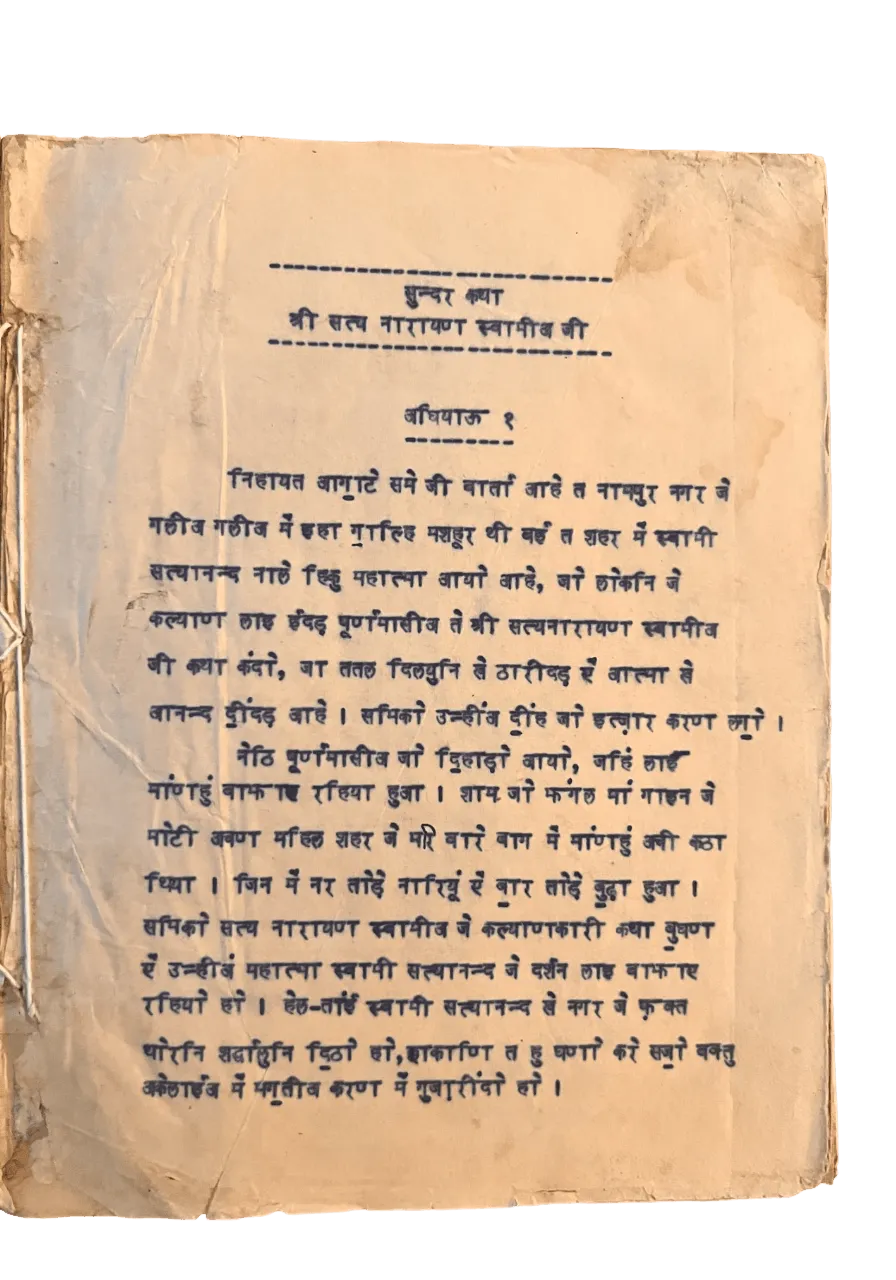 सुन्दर कथा
श्री सत्य नारायण स्वामीअ जी
अधियाऊ १
निहायत आगा॒टे समे जी वार्ता आहे त नामपुर नगर जे
गलीअ गलीअ में इहा गा॒ल्हि मशहूर थी वई त शहर में स्वामी
सत्यानन्द नाले हिकु महात्मा आयो आहे, जो लोकनि जे
कल्याण लाइ ईंदड़ पूर्णमासीअ ते श्री सत्यनारायण स्वामीअ
जी कथा कंदो, जा ततल दिलयुनि से ठारींदड़ ऐं आत्मा से
आनन्द दीं॒दड़ आहे । सभिको उन्हीअ दीं॒ह जो इंत्ज़ार करण लगो॒ ।
नेठि पूर्णमासीअ जो दि॒हाड़ो आयो, जंहिं लाई
मांण्हुं वाझाए रहिया हुआ । शाम जो फंगल मां गाइन जे
मोटी अचण महिल शहर जे भरि वारे बाग में मांण्हुं अची कठा
थिया । जिन में नर तोड़े नारियूं ऐं बा॒र तोड़े बु॒ढा हुआ ।
सभिको सत्य नारायण स्वामीअ जे कल्याणकारी कथा बु॒धण
ऐं उन्हीअं महात्मा स्वामी सत्यानन्द जे दर्शन लाइ वाझाए
रहियो हो । हेल-तांईं स्वामी सत्यानन्द से नगर जे फ़क्त
थोरनि शर्द्धालुनि दि॒ठो हो, छाकाणि त हु घणो करे सजो॒ वक्तु
अकेलाईअ में भग॒तीअ करण में गुज़ारींदो हो ।